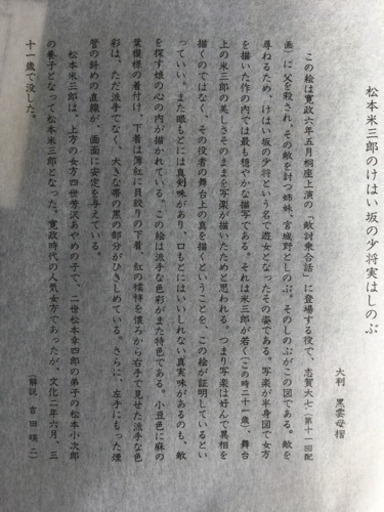 松本米三郎のけはい坂の少将実はしのぶ
大判 黒雲母摺
この絵は寛政六年五月桐座上演の「敵討乗合話」に登場する役で、志賀大七(第十一回配
画)に父を殺され、その敵を討つ姉妹、宮城野としのぶ。そのしのぶがこの図である。敵を
尋ねるため、けはい坂の少将という名で遊女となったその姿である。写楽が半身図で女方
を描いた作の内では最も穏やかな描写である。それは米三郎が若く(この時二十一歳)、舞台
上の米三郎の美しさそのままを写楽が描いたためと思われる。つまり写楽は好んで異相を
描くのではなく、その役者の舞台上の真を描くということを、この絵が証明しているとい
っていい。また眼もとには真剣味があり、口もとにはいいしれない真実味があるのも、敵
を探す娘の心の内が描かれている。この絵は派手な色彩がまた特色である。小豆色に麻の
葉模様の着付け、下着は薄紅に貝絞りの下着、紅の襦袢を懐ろから右手で見せた派手な色
彩は、ただ派手でなく、大きな帯の黒の部分がひきしめている。さらに、左手にもった煙
管の斜めの直線が、画面に安定を与えている。
松本米三郎は、上方の女方四世芳沢あやめの子で、二世松本幸四郎の弟子の松本小次郎
の養子となって松本米三郎となった。寛政時代の人気女方であったが、文化二年六月、三
十一歳で没した。
(解説 吉田暎二)